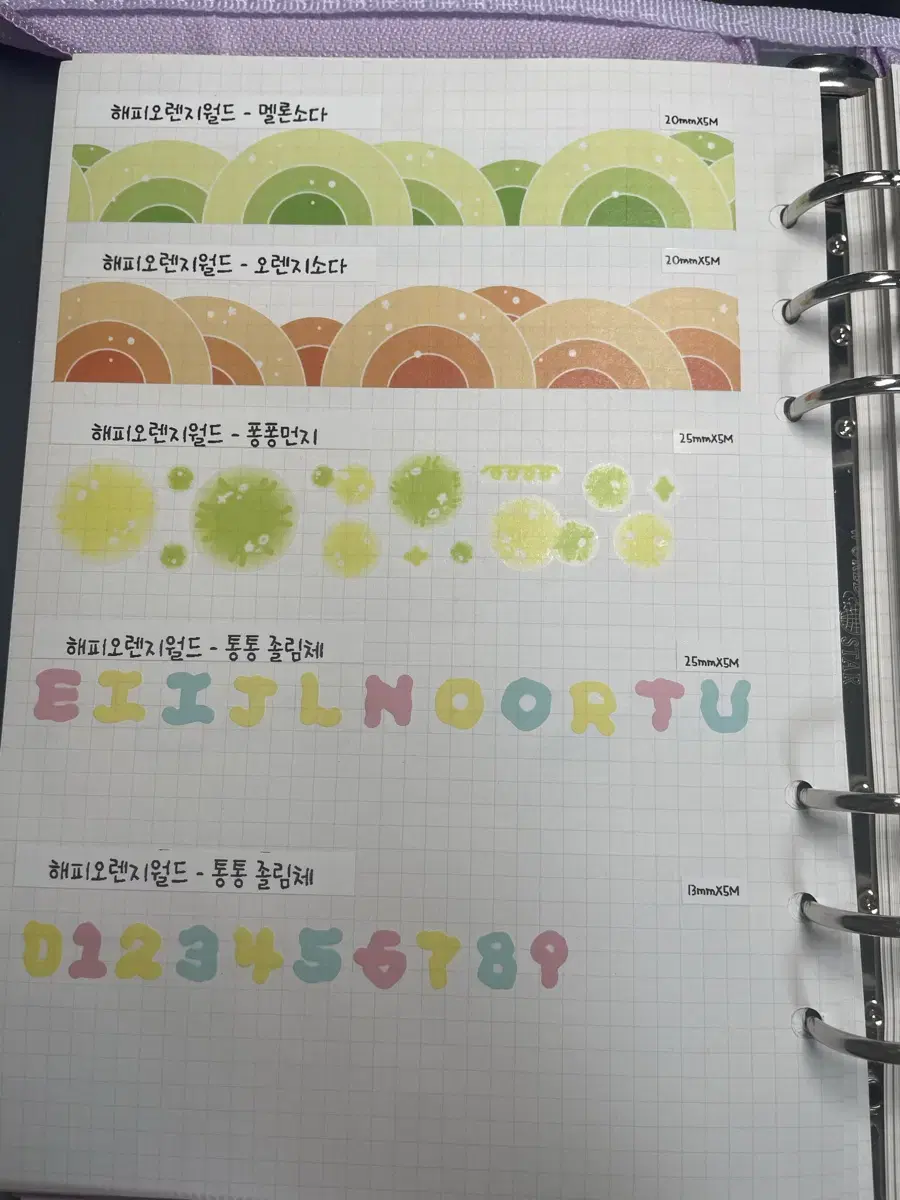 해피오렌지월드 - 멜론소다
20mmX5M
해피오렌지월드 - 오렌지소다
20mmX5M
해피오렌지월드 - 퐁퐁먼지
25mmX5M
해피오렌지월드 - 통통 졸림체
25mmX5M
E I I J L N O O R T U
해피오렌지월드 - 통통 졸림체
13mmX5M
0 1 2 3 4 5 6 7 8 9